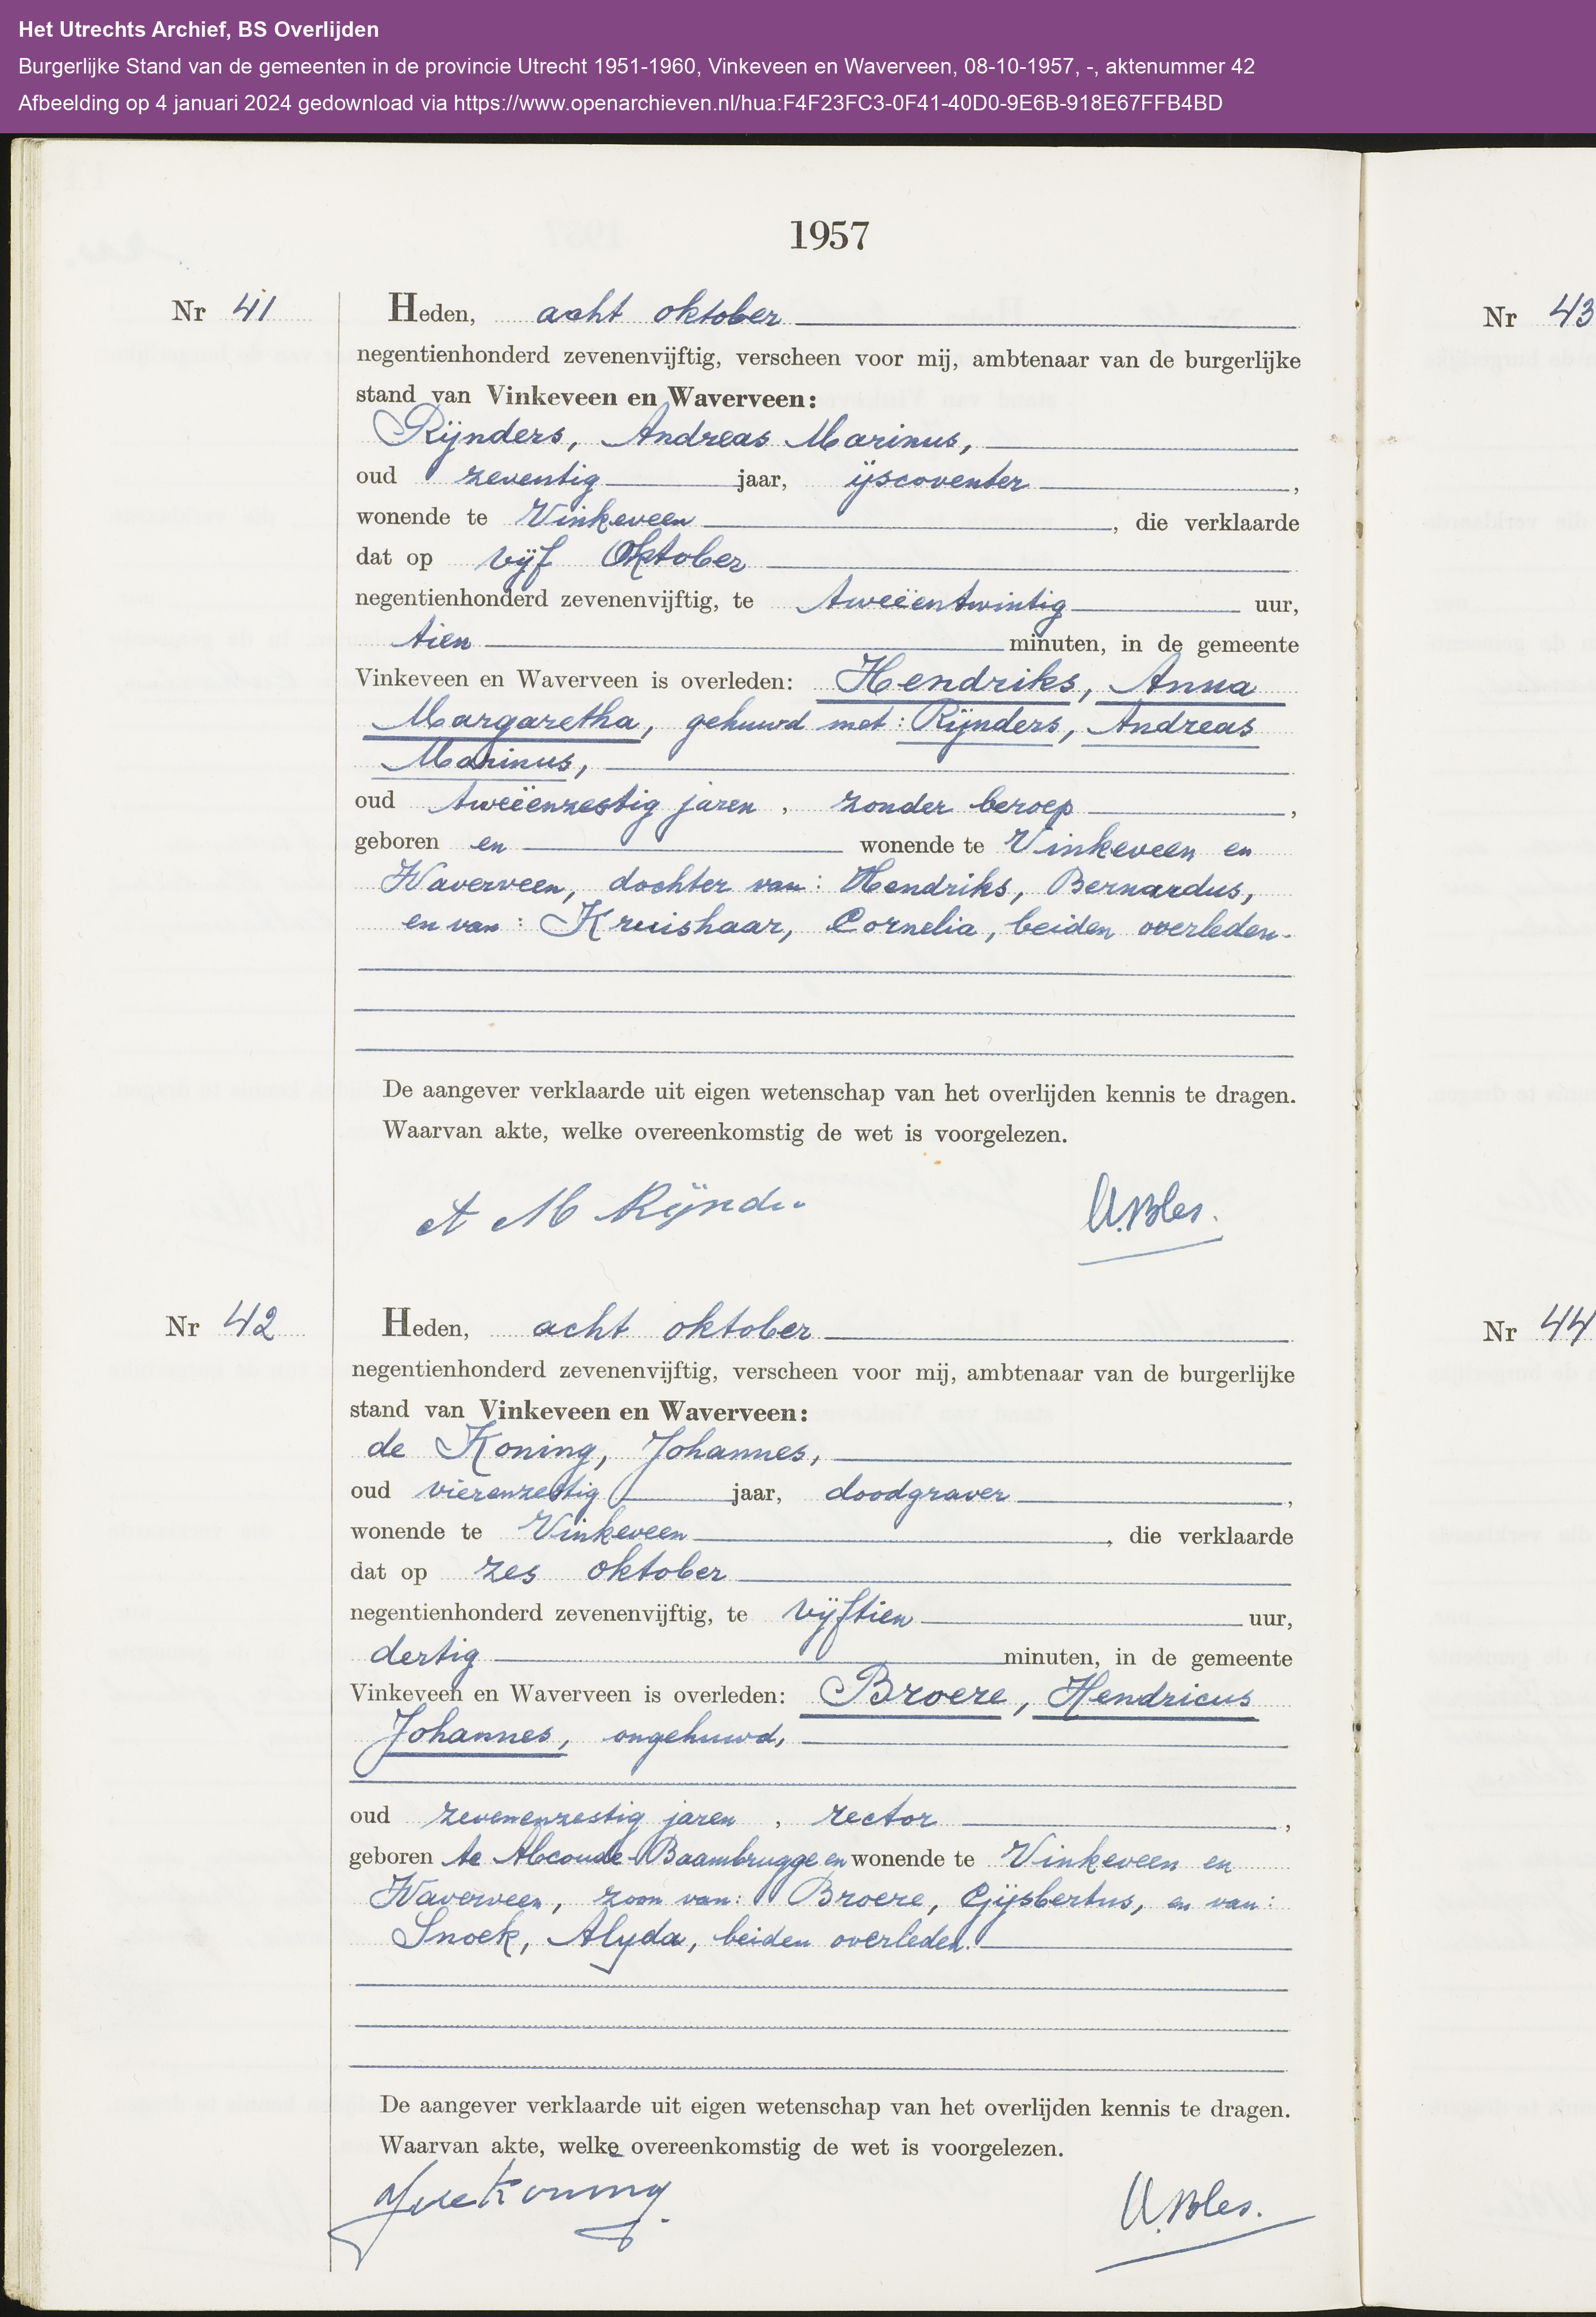 Het Utrechts Archief, BS Overlijden
Burgerlijke Stand van de gemeenten in de provincie Utrecht 1951-1960, Vinkeveen en Waverveen, 08-10-1957, -, aktenummer 42
Afbeelding op 4 januari 2024 gedownload via https://www.openarchieven.nl/hua:F4F23FC3-0F41-40D0-9E6B-918E67FFB4BD
1957
Nr 41
Heden, acht oktober
negentienhonderd zevenenvijftig, verscheen voor mij, ambtenaar van de burgerlijke
stand van Vinkeveen en Waverveen:
Rijnders, Andreas Marinus,
oud zeventig jaar, ijscoventer,
wonende te Vinkeveen, die verklaarde
dat op vijf Oktober
negentienhonderd zevenenvijftig, te tweeëntwintig uur,
tien minuten, in de gemeente
Vinkeveen en Waverveen is overleden: Hendriks, Anna
Margaretha, gehuwd met: Rijnders, Andreas
Marinus,
oud tweeënzestig jaren, zonder beroep,
geboren en wonende te Vinkeveen en
Waverveen, dochter van: Hendriks, Bernardus,
en van: Kruishaar, Cornelia, beiden overleden.
De aangever verklaarde uit eigen wetenschap van het overlijden kennis te dragen.
Waarvan akte, welke overeenkomstig de wet is voorgelezen.
A M Rijnders
Nr 42
Heden, acht oktober
negentienhonderd zevenenvijftig, verscheen voor mij, ambtenaar van de burgerlijke
stand van Vinkeveen en Waverveen:
de Koning, Johannes,
oud vierenzestig jaar, doodgraver,
wonende te Vinkeveen, die verklaarde
dat op zes oktober
negentienhonderd zevenenvijftig, te vijftien uur,
dertig minuten, in de gemeente
Vinkeveen en Waverveen is overleden: Broere, Hendricus
Johannes, ongehuwd,
oud zevenenzestig jaren, rector,
geboren te Abcoude-Baambrugge en wonende te Vinkeveen en
Waverveen, zoon van: Broere, Gijsbertus, en van:
Snoek, Alyda, beiden overleden.
De aangever verklaarde uit eigen wetenschap van het overlijden kennis te dragen.
Waarvan akte, welke overeenkomstig de wet is voorgelezen.
J de Koning.
Nr 43
Nr 44